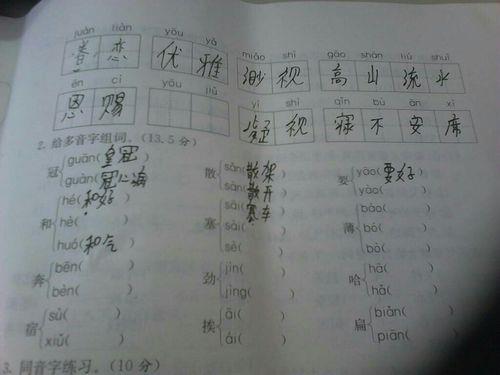 juàn liàn yōu yǎ
眷 恋 优 雅
miǎo shì gāo shān liú shuǐ
视 高 山 流 水
ēn cì yōu jiǔ
恩 赐
yí shì qǐn bù ān xí
疑 视 寝 不 安 席
2. 给多音字组词。(13.5 分)
冠 guān(皇冠) 散 sǎn(散架) 要 yào(要好)
guàn(冠心病) sàn(散开) yāo( )
和 hé(和好) 塞 sài(塞车) 薄 báo( )
hè( ) sāi( ) bó( )
huó(和气) sè( ) bò( )
奔 bēn( ) 劲 jìn( ) 哈 hā( )
bèn( ) jìng( ) hǎ( )
宿 sù( ) 挨 āi( ) 扁 biǎn( )
xiǔ( ) ái( ) piān( )
3. 同音字练习。(10 分)